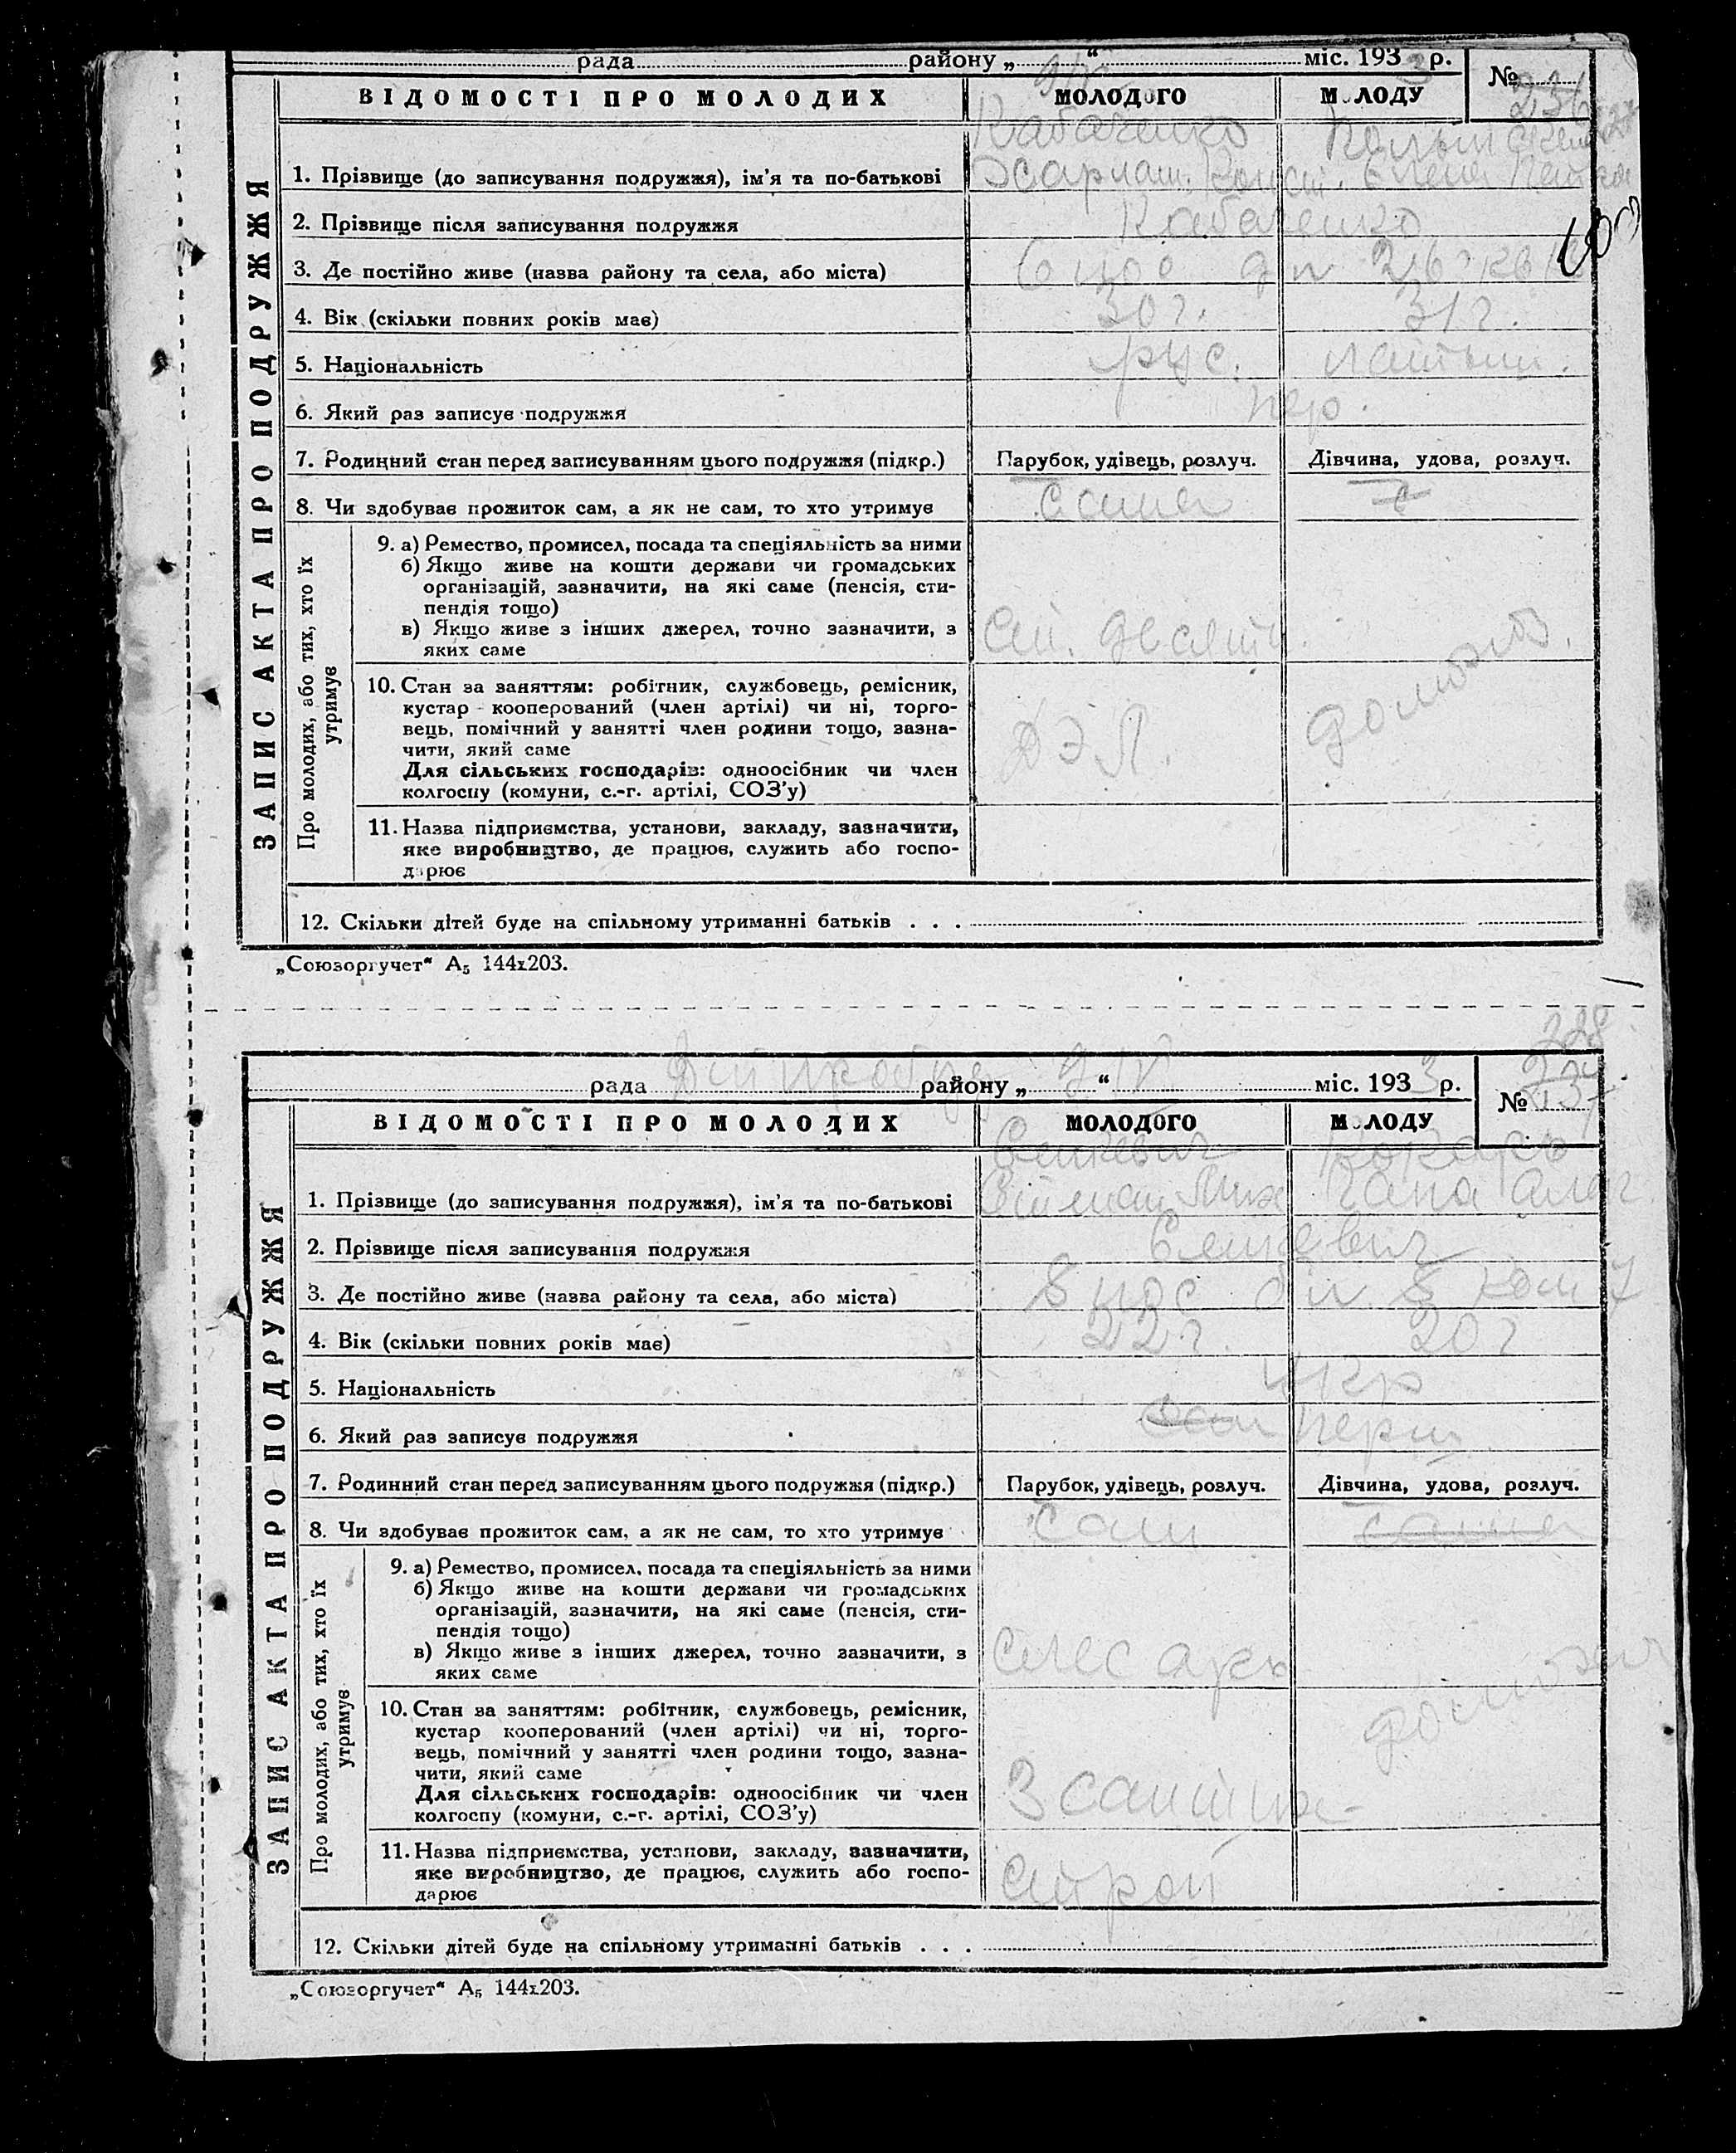 рада района „ 9/IV “ міс. 193 3 р. №
ВІДОМОСТІ ПРО МОЛОДИХ МОЛОДОГО МОЛОДУ
Кабаченко
1. Прізвище (до записування подружжя), ім'я та по-батькові Харлам. Конст. Елена
2. Прізвище після записування подружжя Кабаченко
3. Де постійно живе (назва району та села, або міста) 6
4. Вік (скільки повних років має) 30 г. 31 г.
5. Національність рус. латыш.
6. Який раз записує подружжя пер.
7. Родинний стан перед записуванням цього подружжя (підкр.) Парубок, удівець, розлуч. Дівчина, удова, розлуч.
8. Чи здобуває прожиток сам, а як не сам, то хто утримує
ЗАПИС АКТА ПРО ПОДРУЖЖЯ
Про молодих, або тих, хто їх утримує
9. а) Ремество, промисел, посада та спеціяльність за ними
б) Якщо живе на кошти держави чи громадських
організацій, зазначити, на які саме (пенсія, сти-
пендія тощо)
в) Якщо живе з інших джерел, точно зазначити, з
яких саме
10. Стан за заняттям: робітник, службовець, ремісник,
кустар - кооперований (член артілі) чи ні, торго-
вець, помічний у занятті член родини тощо, зазна-
чити, який саме
Для сільських господарів: одноосібник чи член
колгоспу (комуни, с.-г. артілі, СОЗ'у)
11. Назва підприємства, установи, закладу, зазначити,
яке виробництво, де працює, служить або госпо-
дарює
12. Скільки дітей буде на спільному утриманні батьків . . .
„Союзоргучет“ А5 144х203.
рада району „ 9/IV “ міс. 193 3 р. №
ВІДОМОСТІ ПРО МОЛОДИХ МОЛОДОГО МОЛОДУ
1. Прізвище (до записування подружжя), ім'я та по-батькові
2. Прізвище після записування подружжя
3. Де постійно живе (назва району та села, або міста) 8 пос 5 ком 7
4. Вік (скільки повних років має) 22 г. 20 г
5. Національність укр
6. Який раз записує подружжя перш
7. Родинний стан перед записуванням цього подружжя (підкр.) Парубок, удівець, розлуч. Дівчина, удова, розлуч.
8. Чи здобуває прожиток сам, а як не сам, то хто утримує сам самиа
ЗАПИС АКТА ПРО ПОДРУЖЖЯ
Про молодих, або тих, хто їх утримує
9. а) Ремество, промисел, посада та спеціяльність за ними
б) Якщо живе на кошти держави чи громадських
організацій, зазначити, на які саме (пенсія, сти-
пендія тощо)
в) Якщо живе з інших джерел, точно зазначити, з
яких саме слесарь
10. Стан за заняттям: робітник, службовець, ремісник,
кустар кооперований (член артілі) чи ні, торго-
вець, помічний у занятті член родини тощо, зазна-
чити, який саме
Для сільських господарів: одноосібник чи член
колгоспу (комуни, с.-г. артілі, СОЗ'у)
11. Назва підприємства, установи, закладу, зазначити,
яке виробництво, де працює, служить або госпо-
дарює строй
12. Скільки дітей буде на спільному утриманні батьків . . .
„Союзоргучет“ А5 144х203.